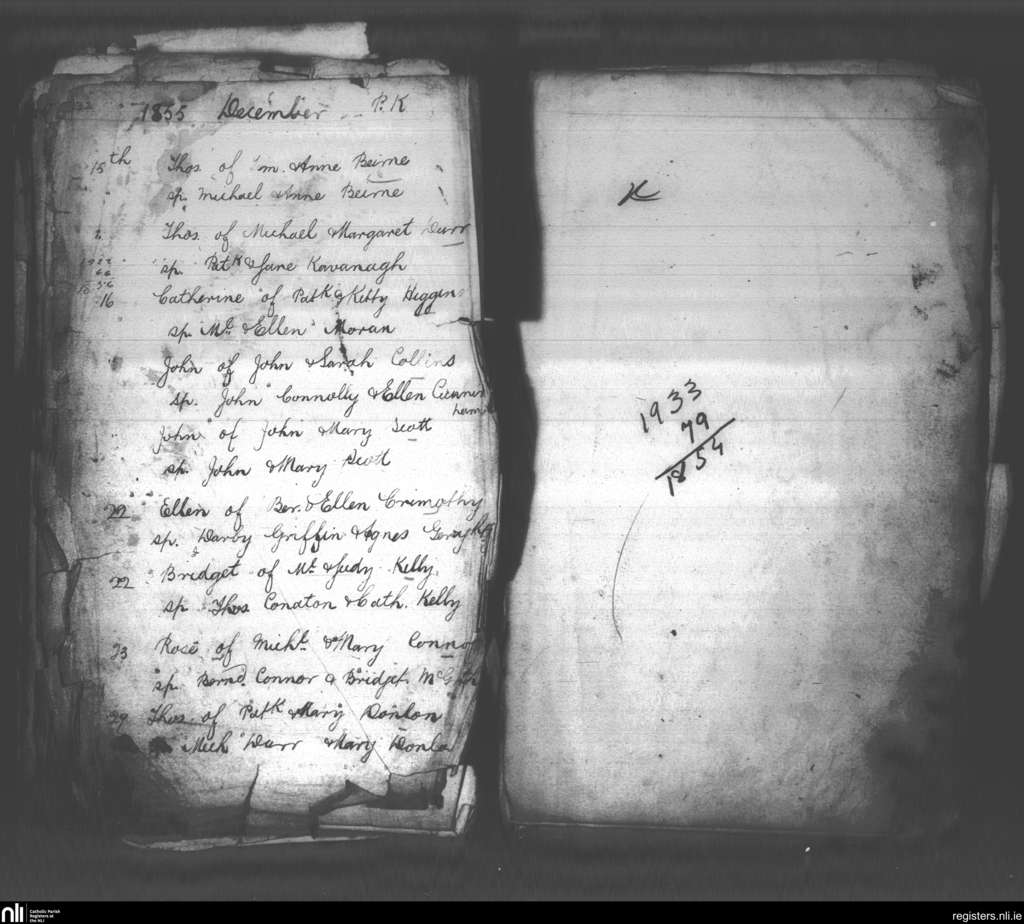 1855 December P.K
15th Thos. of Tm. & Anne Beirne
sp. Michael & Anne Beirne
Thos. of Michael & Margaret Durr
sp. Patk & Jane Kavanagh
16 Catherine of Patk & Kitty Higgins
sp. Mt. & Ellen Moran
John of John & Sarah Collins
sp. John Connolly & Ellen Cunning
ham
John of John & Mary Scott
sp. John & Mary Scott
22 Ellen of Ber. & Ellen Crimothy
sp. Darby Griffin & Agnes
22 Bridget of Mt. & Judy Kelly.
sp Thos Conaton & Cath. Kelly
23 Rose of Michl. & Mary Connor
sp. Bernd. Connor & Bridget
29 Thos. of Patk & Mary Donlon
Mich Durr & Mary Donlo
K
1933
79
1854
nli
Catholic Parish
Registers at
the NLI
registers.nli.ie